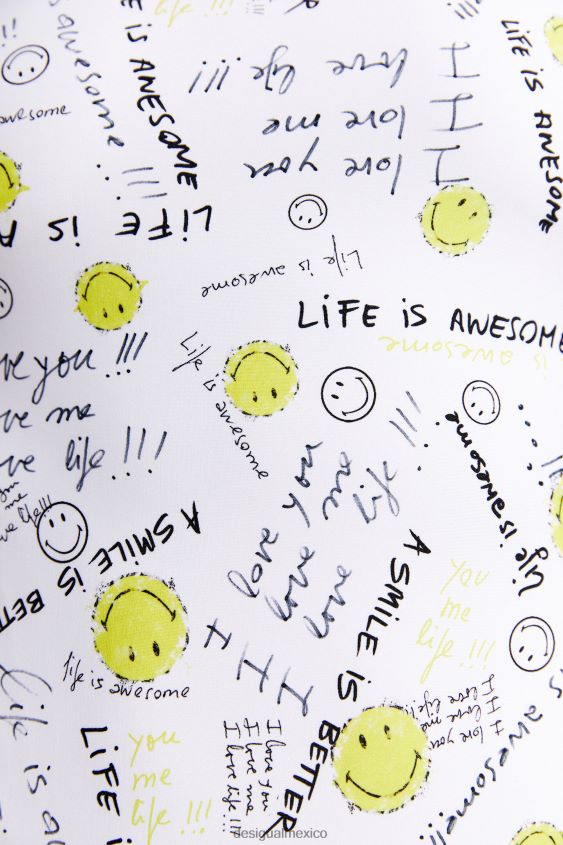 life !!!
E is AWESOME
LiFE is AWESOME
is awesome
awesome
!!!
I love life !!!
I love me
I love you
LiFE is A
Life is awesome
LiFE is AWESOME
is awesome
ve you !!!
ve me
ve life !!!
Life is awesome
I love you
I love me
I love life !!!
Life is awesome
me
ve life!!!
A SMiLE is BETTE
A SMiLE is BETTER
you
me
life !!!
life is awesome
Life is a
LiFE i
you
me
life !!!
I love you
I love me
I love life !!!
I love you
I love me
I love life !!!
is awesome!!!
desigualmexico